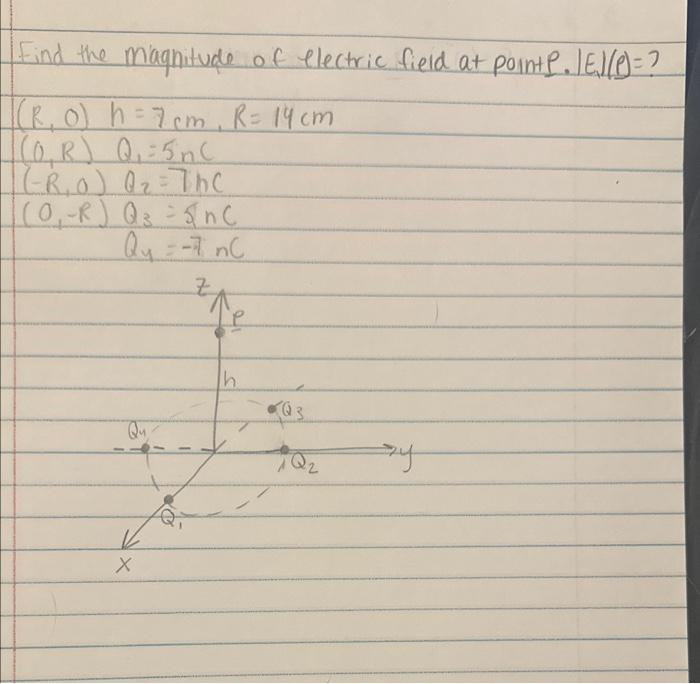 Find the magnitude of electric field at point P. |E|(P)=?
(R, 0) h = 7 cm, R = 14 cm
(0, R) Q₁ = 5 nC
(-R, 0) Q₂ = 7 nC
(0, -R) Q₃ = 5 nC
Q₄ = -7 nC
z
P
h
Q₃
Q₄
y
Q₂
Q₁
x